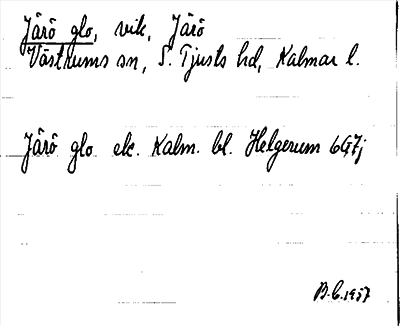 Järö glo, vik, Järö
Västrums sn, S. Tjusts hd, Kalmar l.
Järö glo ek. Kalm. bl. Helgerum 6G7j
B.C. 1957